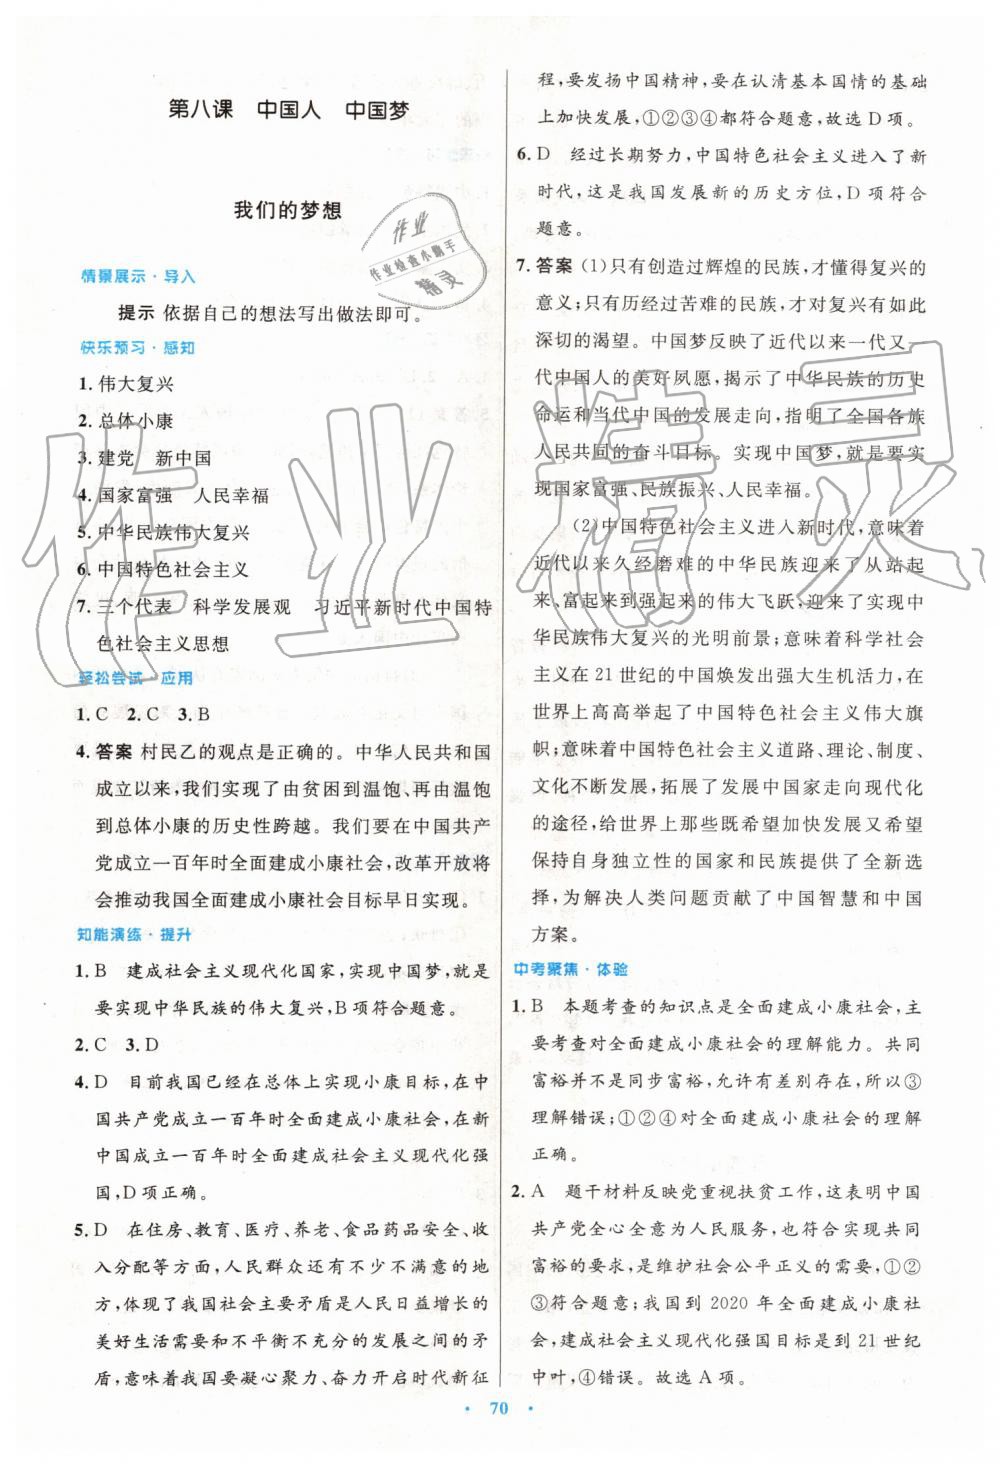 第八课　中国人　中国梦
我们的梦想
情景展示·导入
提示 依据自己的想法写出做法即可。
快乐预习·感知
1. 伟大复兴
2. 总体小康
3. 建党　新中国
4. 国家富强　人民幸福
5. 中华民族伟大复兴
6. 中国特色社会主义
7. 三个代表　科学发展观　习近平新时代中国特
色社会主义思想
轻松尝试·应用
1. C 2. C 3. B
4. 答案 村民乙的观点是正确的。中华人民共和国
成立以来,我们实现了由贫困到温饱、再由温饱
到总体小康的历史性跨越。我们要在中国共产
党成立一百年时全面建成小康社会,改革开放将
会推动我国全面建成小康社会目标早日实现。
知能演练·提升
1. B　建成社会主义现代化国家,实现中国梦,就是
要实现中华民族的伟大复兴,B项符合题意。
2. C 3. D
4. D　目前我国已经在总体上实现小康目标,在中
国共产党成立一百年时全面建成小康社会,在新
中国成立一百年时全面建成社会主义现代化强
国,D项正确。
5. D　在住房、教育、医疗、养老、食品药品安全、收
入分配等方面,人民群众还有不少不满意的地
方,体现了我国社会主要矛盾是人民日益增长的
美好生活需要和不平衡不充分的发展之间的矛
盾,意味着我国要凝心聚力、奋力开启时代新征
程,要发扬中国精神,要在认清基本国情的基础
上加快发展,①②③④都符合题意,故选D项。
6. D　经过长期努力,中国特色社会主义进入了新
时代,这是我国发展新的历史方位,D项符合
题意。
7. 答案 (1)只有创造过辉煌的民族,才懂得复兴的
意义;只有历经过苦难的民族,才对复兴有如此
深切的渴望。中国梦反映了近代以来一代又一
代中国人的美好夙愿,揭示了中华民族的历史
命运和当代中国的发展走向,指明了全国各族
人民共同的奋斗目标。实现中国梦,就是要实
现国家富强、民族振兴、人民幸福。
(2)中国特色社会主义进入新时代,意味着
近代以来久经磨难的中华民族迎来了从站起
来、富起来到强起来的伟大飞跃,迎来了实现中
华民族伟大复兴的光明前景;意味着科学社会
主义在21世纪的中国焕发出强大生机活力,在
世界上高高举起了中国特色社会主义伟大旗
帜;意味着中国特色社会主义道路、理论、制度、
文化不断发展,拓展了发展中国家走向现代化
的途径,给世界上那些既希望加快发展又希望
保持自身独立性的国家和民族提供了全新选
择,为解决人类问题贡献了中国智慧和中国
方案。
中考聚焦·体验
1. B　本题考查的知识点是全面建成小康社会,主
要考查对全面建成小康社会的理解能力。共同
富裕并不是同步富裕,允许有差别存在,所以③
理解错误;①②④对全面建成小康社会的理解
正确。
2. A　题干材料反映党重视扶贫工作,这表明中国
共产党全心全意为人民服务,也符合实现共同
富裕的要求,是维护社会公平正义的需要,①②
③符合题意;我国到2020年全面建成小康社
会,建成社会主义现代化强国目标是到21世纪
中叶,④错误。故选A项。
· 70 ·
作业
作业检查小助手
精灵
作业精灵